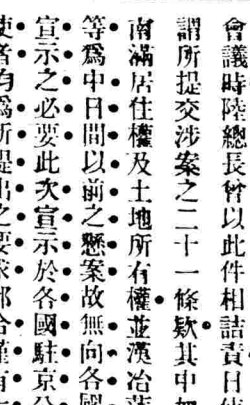 會議時陸總長曾以此件相詰責日
謂所提交涉案之二十一條欵其中
南滿居住權及土地所有權並漢冶
等爲中日間以前之懸案故無向各
宣示之必要此次宣示於各國駐京
使者均爲所提出之要求部